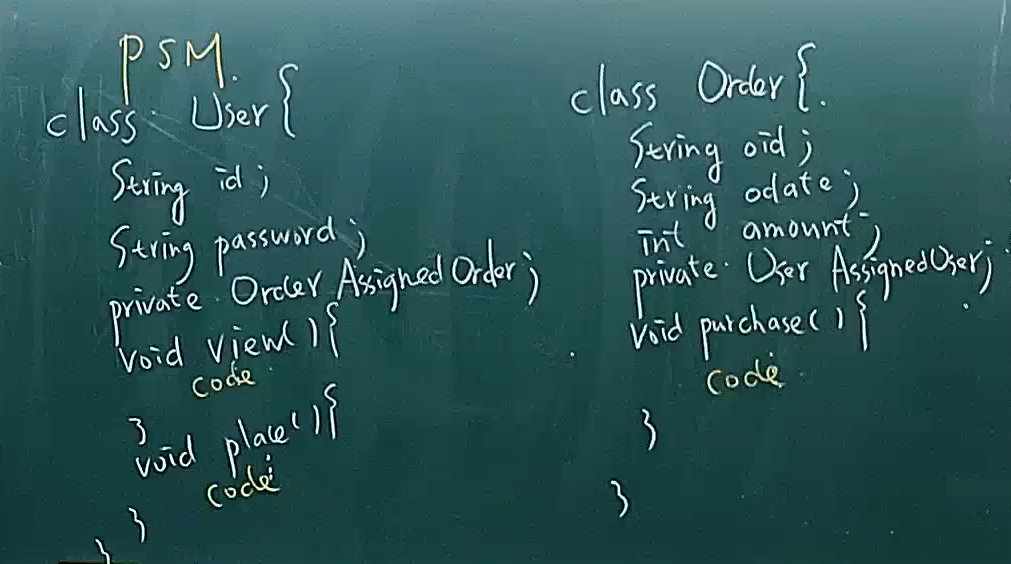 PSM.
class User{
String id;
String password;
private Order AssignedOrder;
void view(){
code
}
void place(){
code
}
}
class Order{.
String oid;
String odate;
int amount;
private User AssignedUser;
void purchase(){
code
}
}